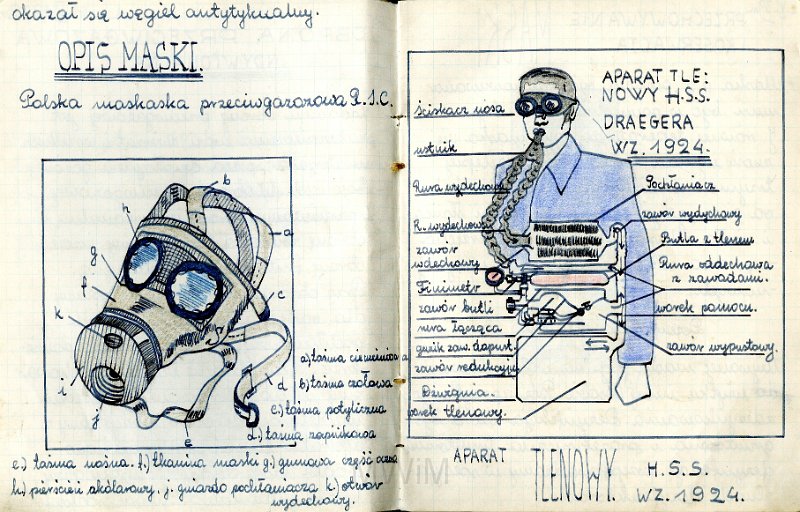 okazał się węgiel antytykualny.
OPIS MASKI.
Polska maskaska przeciwgazowa R.S.C.
b
h
a
g
f
c
k
i
d
j
e
a) taśma ciemieniowa
b) taśma czołowa
c) taśma potyliczna
d.) taśma zapinkowa
e.) taśma nośna. f.) tkanina maski g.) gumowa część
h.) pierścień okólarowy. j. gniazdo pochłaniacza k.) otwór
wydechowy.
APARAT TLE:
NOWY H.S.S.
DRAEGERA
WZ. 1924.
Ściskacz nosa
ustnik
Rura wydechowa
R. wydechowa
zawór
wdechowy
Finimetr
zawór butli
rura łącząca
guzik zaw. dopust.
zawór redukcyjny
Dźwignia.
worek tlenowy.
Pochłaniacz
zawór wydychowy
Butla z tlenem
Rura oddechowa
z zaworami.
worek pomocn.
zawór wypustowy.
APARAT TLENOWY. H.S.S.
WZ. 1924.